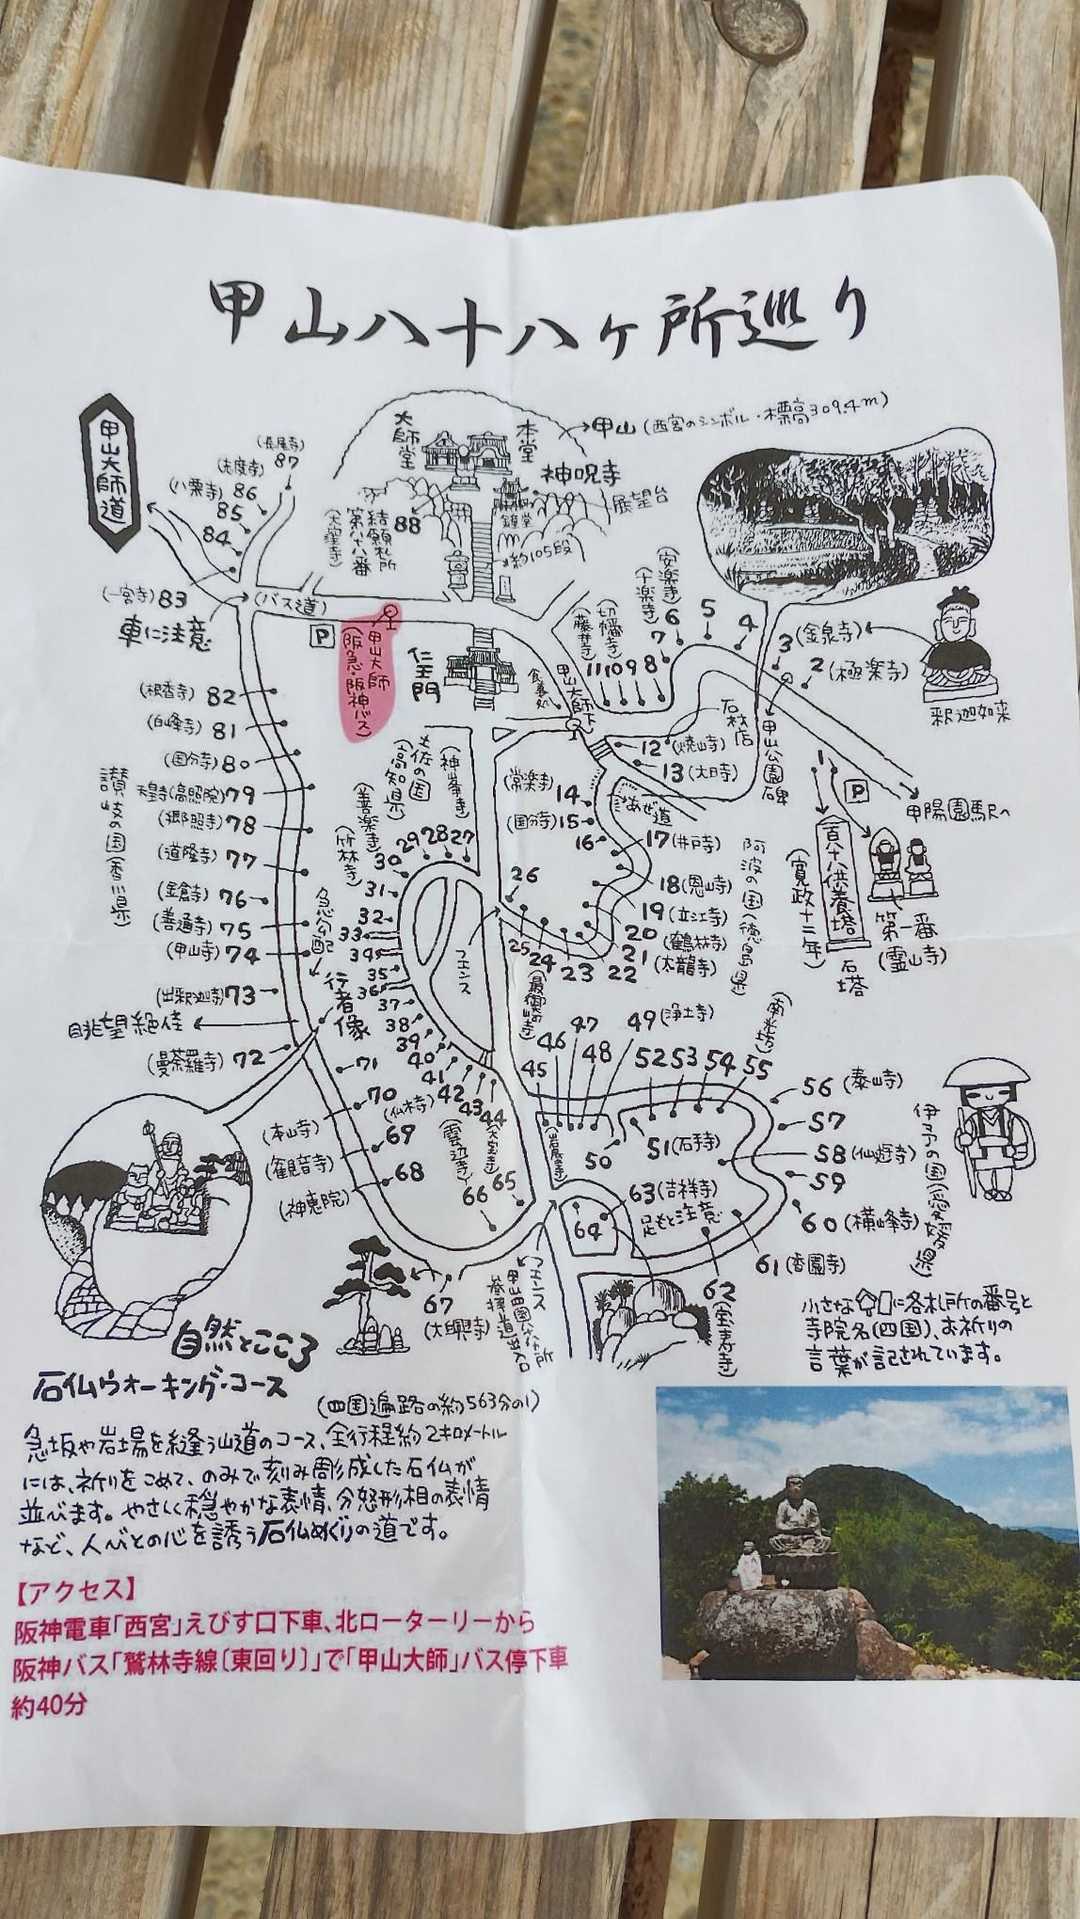 甲山八十八ヶ所巡り
甲山大師道
(長尾寺)
87
(志度寺)
86
(八栗寺)
85
84
(一宮寺) 83
車に注意
(バス道)
P
大師堂
本堂
甲山 (西宮のシンボル・標高309.4m)
神呪寺
展望台
鐘堂
約105段
88
結願札所
第八十八番
(大窪寺)
甲山大師
(阪急・阪神バス)
仁王門
食養処
甲山大師下
(安楽寺)
(十楽寺)
(切幡寺)
(藤井寺)
11 10 9 8 7 6 5 4
3 (金泉寺)
2 (極楽寺)
釈迦如来
甲山公園碑
石材店
12 (焼山寺)
13 (大日寺)
あぜ道
1
P
甲陽園駅へ
百八十八供養塔
(寛政十二年)
石塔
第一番
(霊山寺)
(根香寺) 82
(白峰寺) 81
(国分寺) 80
天皇寺(高照院) 79
(郷照寺) 78
(道隆寺) 77
(金倉寺) 76
(善通寺) 75
(甲山寺) 74
(出釈迦寺) 73
眺望絶佳
(曼荼羅寺) 72
讃岐の国(香川県)
急勾配
行者像
土佐の国
(高知県)
(神峯寺)
(善楽寺)
(竹林寺)
30 29 28 27
31
32
33
35
36
37
38
39
40
41
42
43
44
フェンス
(常楽寺) 14
(国分寺) 15
16
17 (井戸寺)
18 (恩山寺)
19 (立江寺)
20 (鶴林寺)
21 (太龍寺)
22
23
24
25
26
(最御崎寺)
阿波の国(徳島県)
71
70
(本山寺)
69
(観音寺)
68
(神恵院)
(仏木寺)
(雲辺寺)
(大宝寺)
66 65
67
(大興寺)
フェンス
甲山四国八十八ヶ所
参拝道並入口
45
46
47
48
49 (浄土寺)
(岩屋寺)
50
51 (石手寺)
52 53 54 55
(南光坊)
56 (泰山寺)
57
58 (仙遊寺)
59
60 (横峰寺)
61 (香園寺)
62
(宝寿寺)
63 (吉祥寺)
足もと注意
64
伊予の国(愛媛県)
小さな に各札所の番号と
寺院名(四国)、お祈りの
言葉が記されています。
自然とこころ
石仏ウォーキング・コース
(四国遍路の約563分の1)
急坂や岩場を縫う山道のコース、全行程約2キロメートル
には、祈りをこめて、のみで刻み彫成した石仏が
並べます。やさしく穏やかな表情、分怒形相の表情
など、人びとの心を誘う石仏めぐりの道です。
【アクセス】
阪神電車「西宮」えびす口下車、北ローターリーから
阪神バス「鷲林寺線〔東回り〕」で「甲山大師」バス停下車
約40分